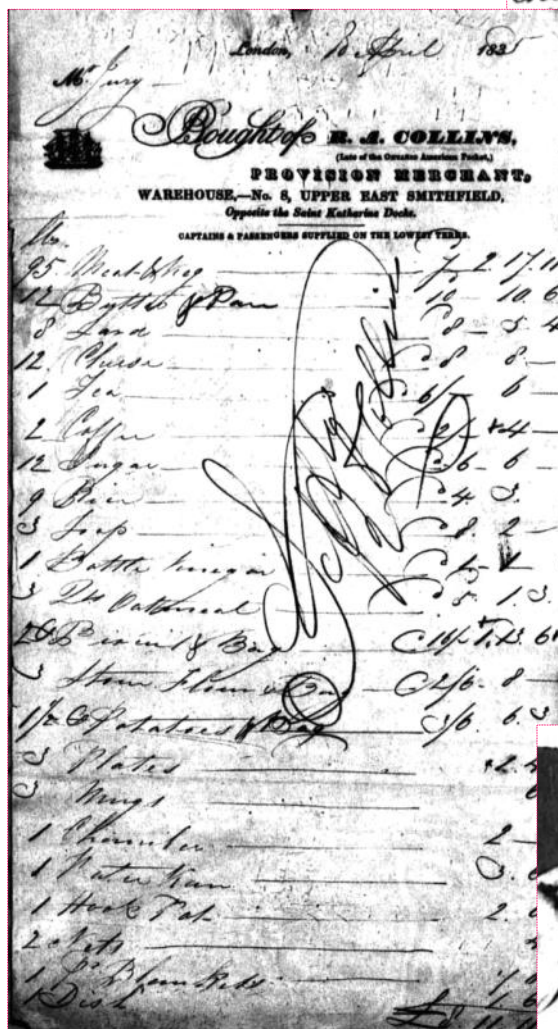 London, 10 April 1835
Mr Jury
Bought of R. A. COLLINS,
(Late of the Ontario American Packet,)
PROVISION MERCHANT,
WAREHOUSE,—No. 8, UPPER EAST SMITHFIELD,
Opposite the Saint Katharine Docks.
CAPTAINS & PASSENGERS SUPPLIED ON THE LOWEST TERMS.
lbs.
95 Meat & Keg 7 2. 17. 11
12 Butter & Pan 10 - 10. 6
8 8 - 5. 4
12 Cheese @ 8 8 —
1 Tea 6/- 6 —
2 Coffee @ 2/- 4 —
12 Sugar @ 6 - 6 —
9 @ 4 3.
3 Soap @ 8. 2 —
1 Bottle Vinegar 1 —
3 Oatmeal @ 5. 1. 3
Biscuit & Bag
3 Stone Flour & Bag @ 2/6. 8 —
1½ C Potatoes & Bag 3/6 6. 3
3 Plates 2. 4
3 Mugs
1 Chamber 2 —
1 Water Can 3.
1 Hook Pot 2.
2 Nets
1 Pr Blankets
1 Dish 1. 6